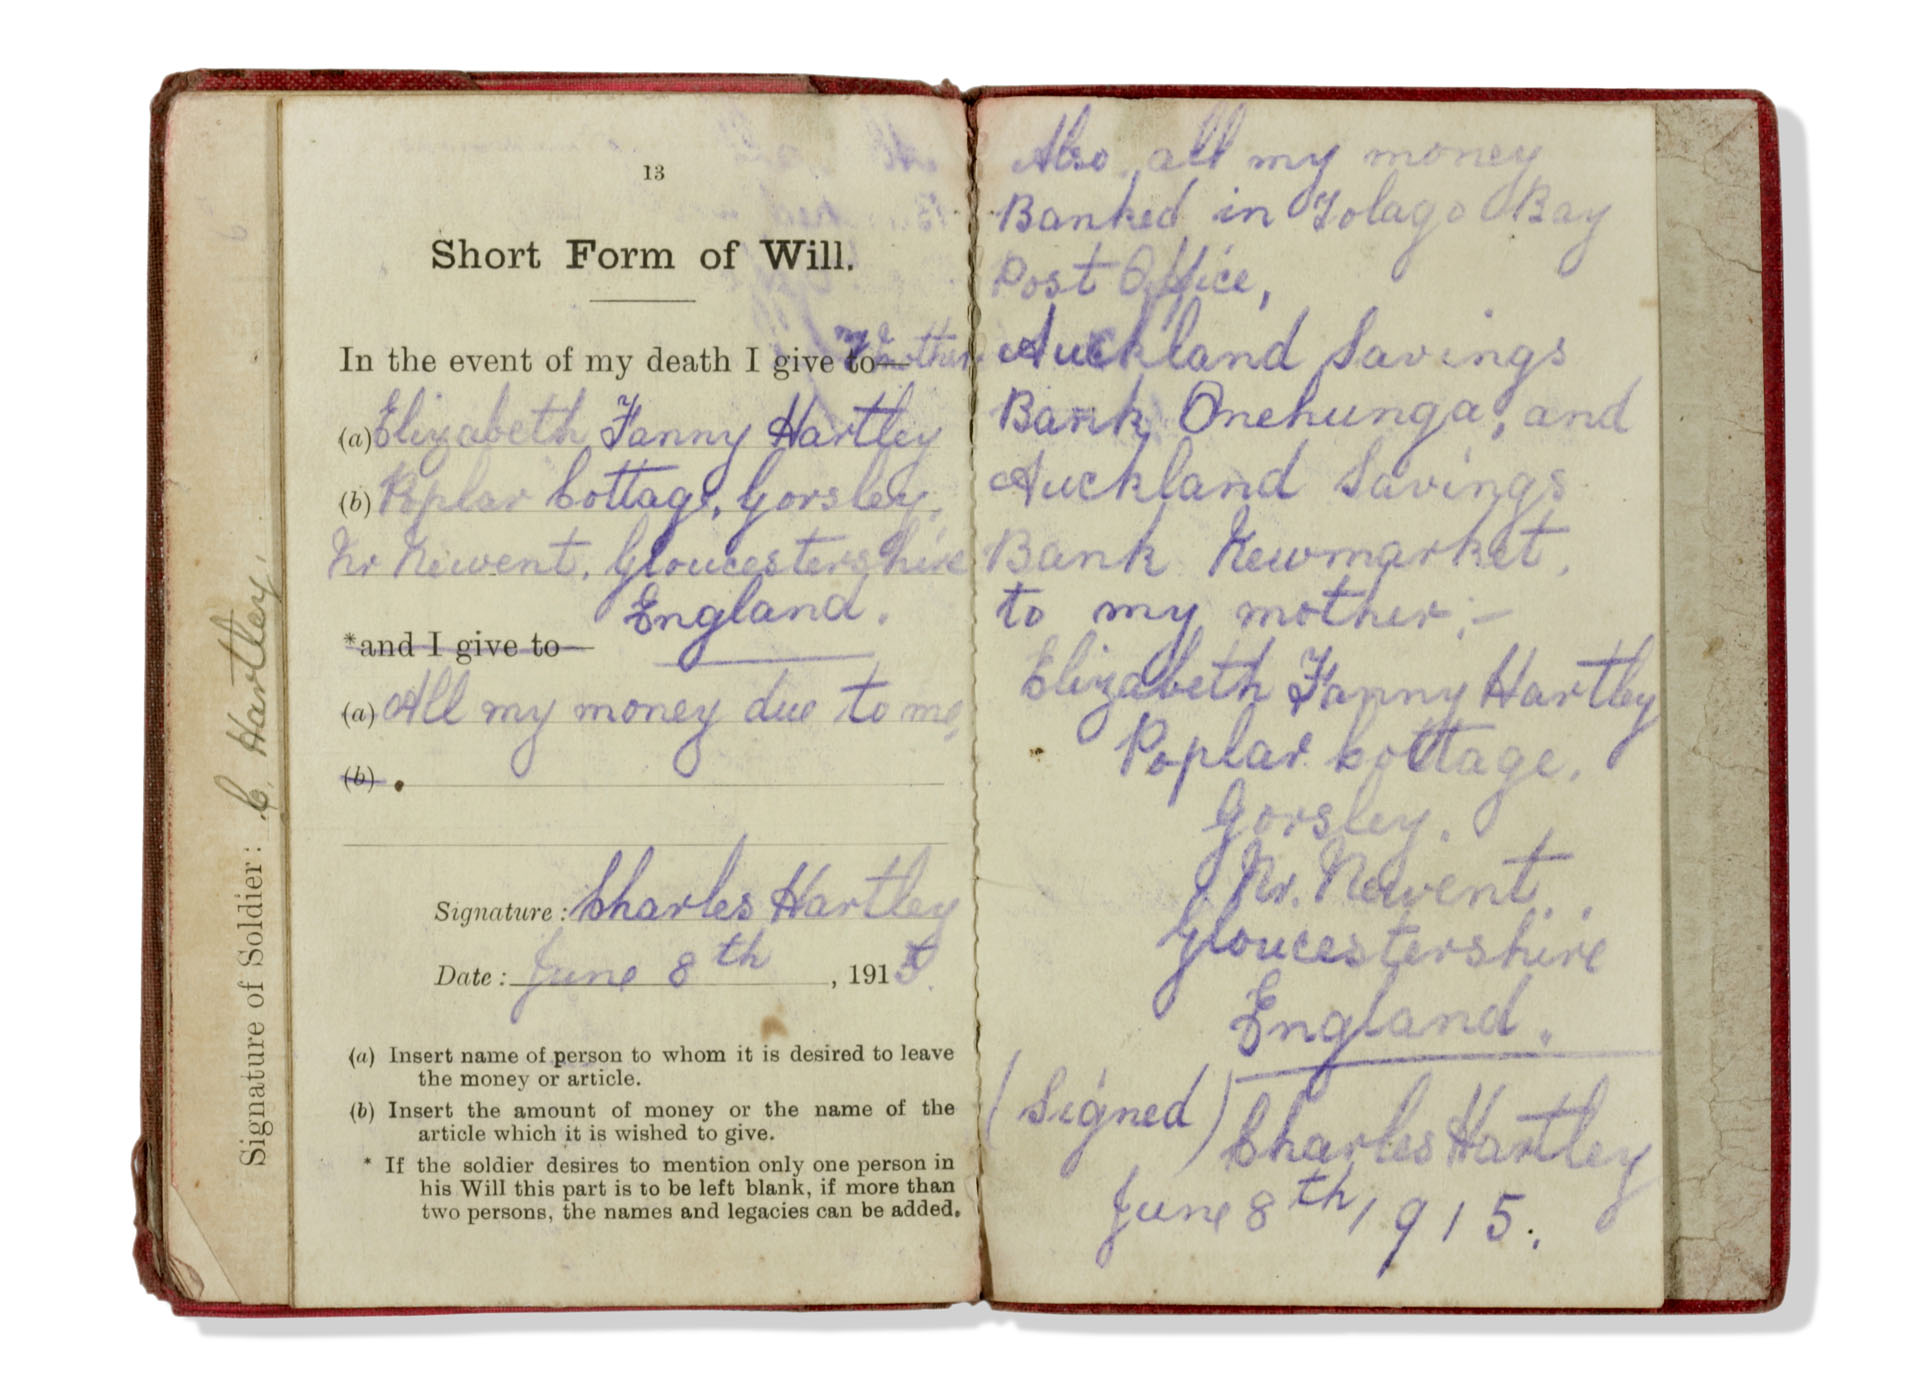 13
Short Form of Will.
In the event of my death I give to— my Mother
(a) Elizabeth Fanny Hartley
(b) Poplar Cottage, Gorsley,
Nr Newent, Gloucestershire
England.
*and I give to—
(a) All my money due to me,
(b) .
Signature: Charles Hartley
Date: June 8th, 1915.
(a) Insert name of person to whom it is desired to leave
the money or article.
(b) Insert the amount of money or the name of the
article which it is wished to give.
* If the soldier desires to mention only one person in
his Will this part is to be left blank, if more than
two persons, the names and legacies can be added.
Signature of Soldier: C. Hartley,
Also, all my money
Banked in Tolago Bay
Post Office,
Auckland Savings
Bank Onehunga, and
Auckland Savings
Bank Newmarket,
to my mother:—
Elizabeth Fanny Hartley
Poplar Cottage,
Gorsley.
Nr. Newent.
Gloucestershire
England.
(Signed) Charles Hartley
June 8th, 1915.